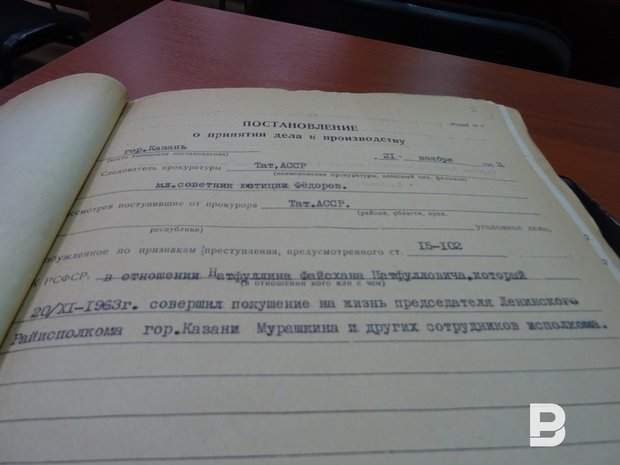 ПОСТАНОВЛЕНИЕ
о принятии дела к производству
гор.Казань 21 ноября 3
(место вынесения постановления)
Следователь прокуратуры Тат.АССР
(наименование прокуратуры, классный чин, фамилия)
мл.советник юстиции Фёдоров.
смотрев поступившие от прокурора Тат.АССР.
(района, области, края,
республики) уголовное дело,
збужденное по признакам преступления, предусмотренного ст. 15-102
К РСФСР. в отношении Натфуллина Файсхана Натфулловича,который
(в отношении кого или с чем)
20/XI-1963г. совершил покушение на жизнь председателя Ленинского
Райисполкома гор.Казани Мурашкина и других сотрудников исполкома.
B